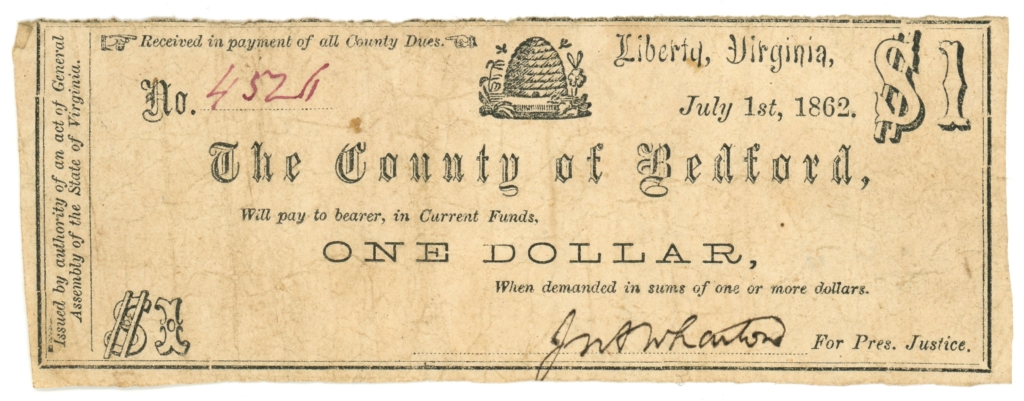 Issued by authority of an act of General
Assembly of the State of Virginia.
Received in payment of all County Dues.
No. 4526
Liberty, Virginia,
July 1st, 1862.
$1
The County of Bedford,
Will pay to bearer, in Current Funds,
ONE DOLLAR,
When demanded in sums of one or more dollars.
$1
Jn A Wharton For Pres. Justice.